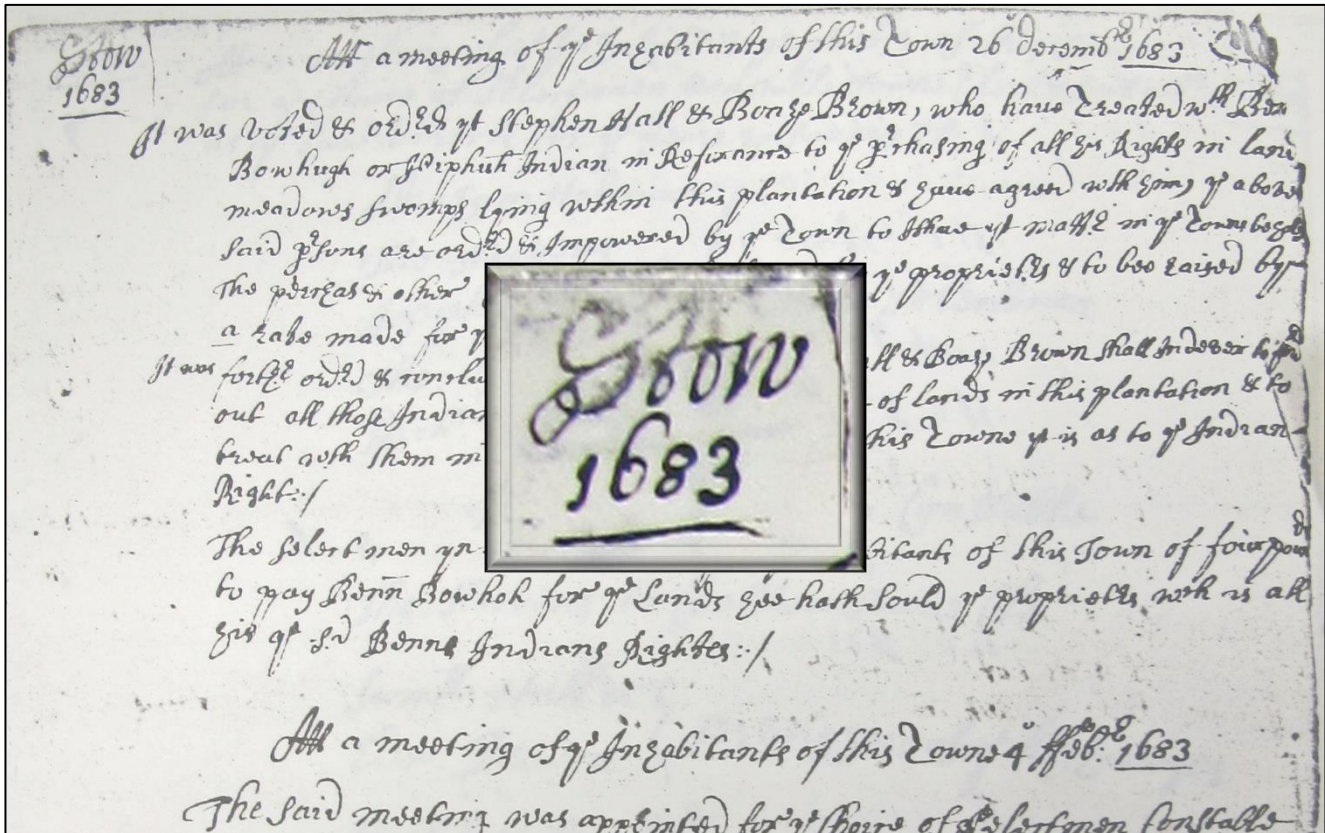 Stow
1683
Att a meeting of ye Inhabitants of this Town 26 decembr 1683
It was voted & ordrd yt Stephen Hall & Boaze Brown, who have Treated wth Ben
Bowhugh or Indian in Referance to ye prchasing of all his Rights in land
meadows swomps lying wthin this plantation & have agreed wth him, ye above
said prsons are ordrd & Impowered by ye Town to ye Towns
The perchas & other
ye proprietrs & to bee raised by
a rate made for
ll & Boaz Brown shall Indever to
It was forthr ordrd & conclu
of lands in this plantation & to
out all those Indian
this Towne yt is as to ye Indian
treat wth them in
Right:/
The select men yn
bitants of this Town of four
to pay Benn Bowhok for ye Lands hee hath sould ye proprietrs wch is all
his ye sd Benns Indians Rightes:/
Stow
1683
Att a meeting of ye Inhabitants of this Towne 4 ffeb: 1683
The said meeting was appointed for ye Choice of selectmen Constable